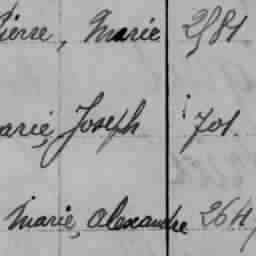 Pierre, Marie 2581
Marie, Joseph 701.
Marie, Alexandre 264